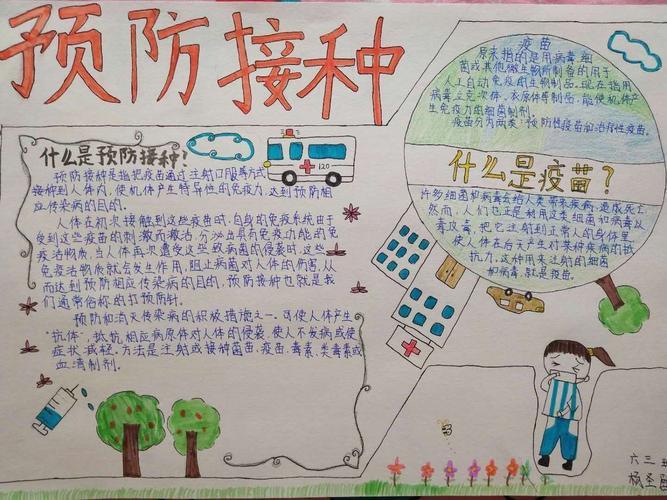 预防接种
什么是预防接种?
预防接种是指把疫苗通过注射口服等方式
接种到人体内,使机体产生特异性的免疫力,达到预防相
应传染病的目的.
人体在初次接触到这些疫苗时,自身的免疫系统由于
受到这些疫苗的刺激而激活,分泌出具有免疫功能的免
疫活物质,当人体再次遭受这些致病菌的侵袭时,这些
免疫活物质就会发生作用,阻止病菌对人体的伤害,从
而达到预防相应传染病的目的,预防接种也就是我
们通常俗称的打预防针.
预防和消灭传染病的积极措施之一.可使人体产生
"抗体",抵抗相应病原体对人体的侵袭,使人不发病或使
症状减轻.方法是注射或接种菌苗、疫苗、毒素、类毒素或
血清制剂.
120
疫苗
原来指的是用病毒、细
菌或其他微生物所制备的用于
人工自动免疫的生物制品,现在指用
病毒立克次体、衣原体等制品,能使机体产
生免疫力的细菌制剂.
疫苗分为两类:预防性疫苗和治疗性疫苗.
什么是疫苗?
许多细菌和病毒在给人类带来疾病,造成死亡
然而,人们也正是利用这类细菌和病毒以
毒攻毒,把它注射到正常人的身体里
使人体在后天产生对某种疾病的抵
抗力,这种用来注射的细菌
和病毒,就是疫苗.
六三
杨圣